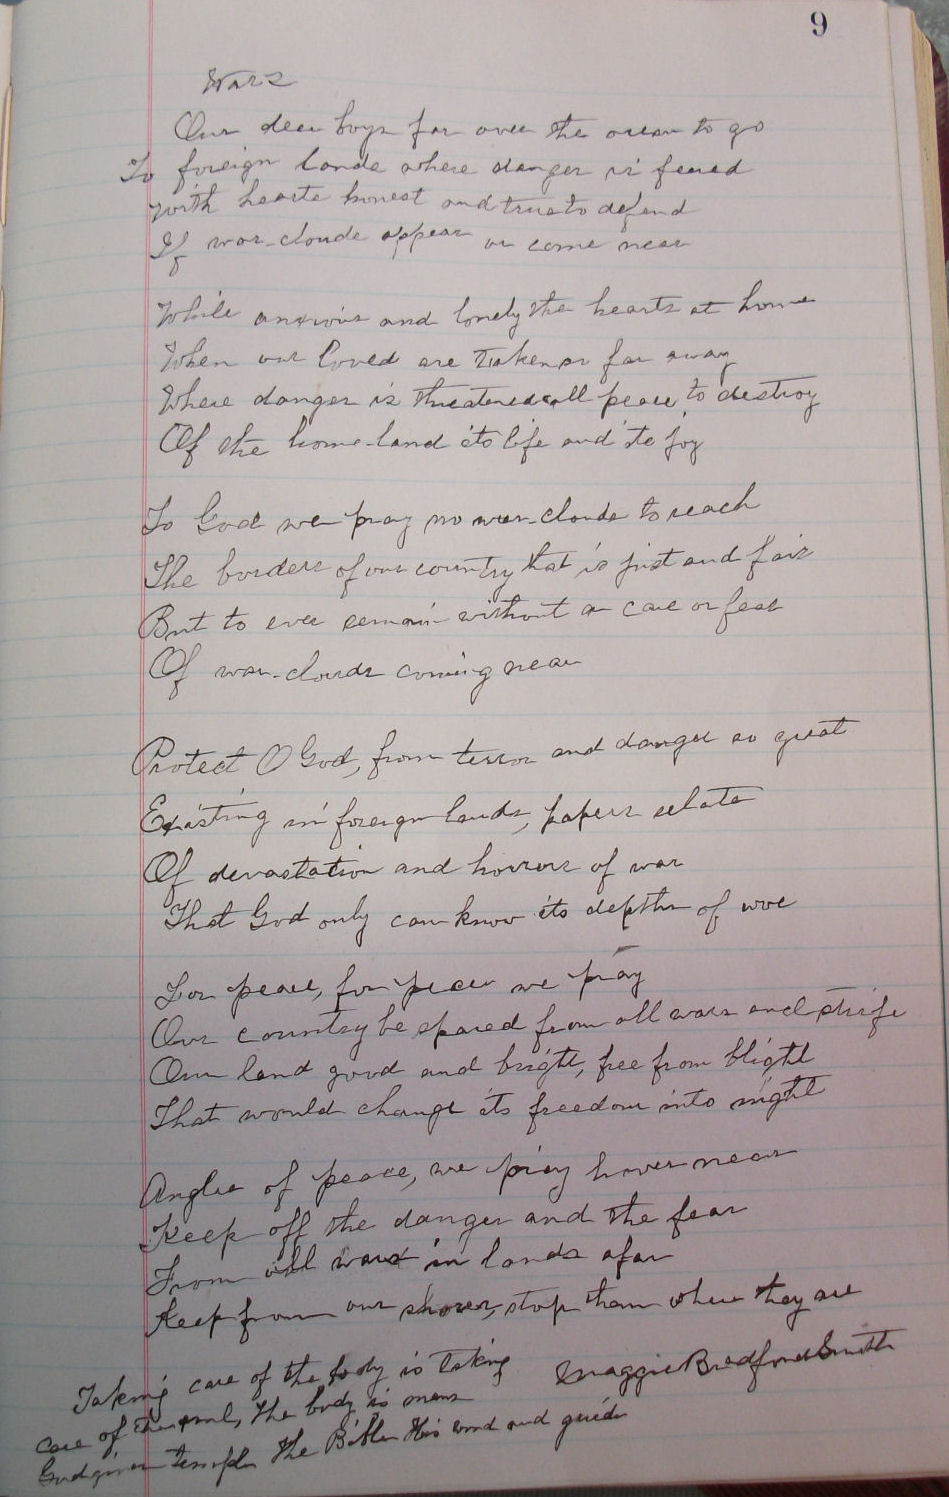 9
Wars
Our dear boys far over the ocean to go
To foreign lands where danger is feared
With hearts honest and true to defend
If war-clouds appear or come near
While anxious and lonely the hearts at home
When our loved are taken so far away
Where danger is threatened all peace to destroy
Of the home-land its life and its joy
To God we pray no war-clouds to reach
The borders of our country that is just and fair
But to ever remain without a care or fear
Of war-clouds coming near
Protect O God, from terror and danger so great
Existing in foreign lands, papers relate
Of devastation and horrors of war
That God only can know its depths of woe
For peace, for peace we pray
Our country be spared from all wars and strife
Our land good and bright, free from blight
That would change its freedom into night
Angles of peace, we pray hover near
Keep off the danger and the fear
From all wars in lands afar
Keep from our shores, stop them where they are
Maggie Bradford Smith
Taking care of the body is taking
care of the soul, the body is mans
God given temple the Bible His word and guide